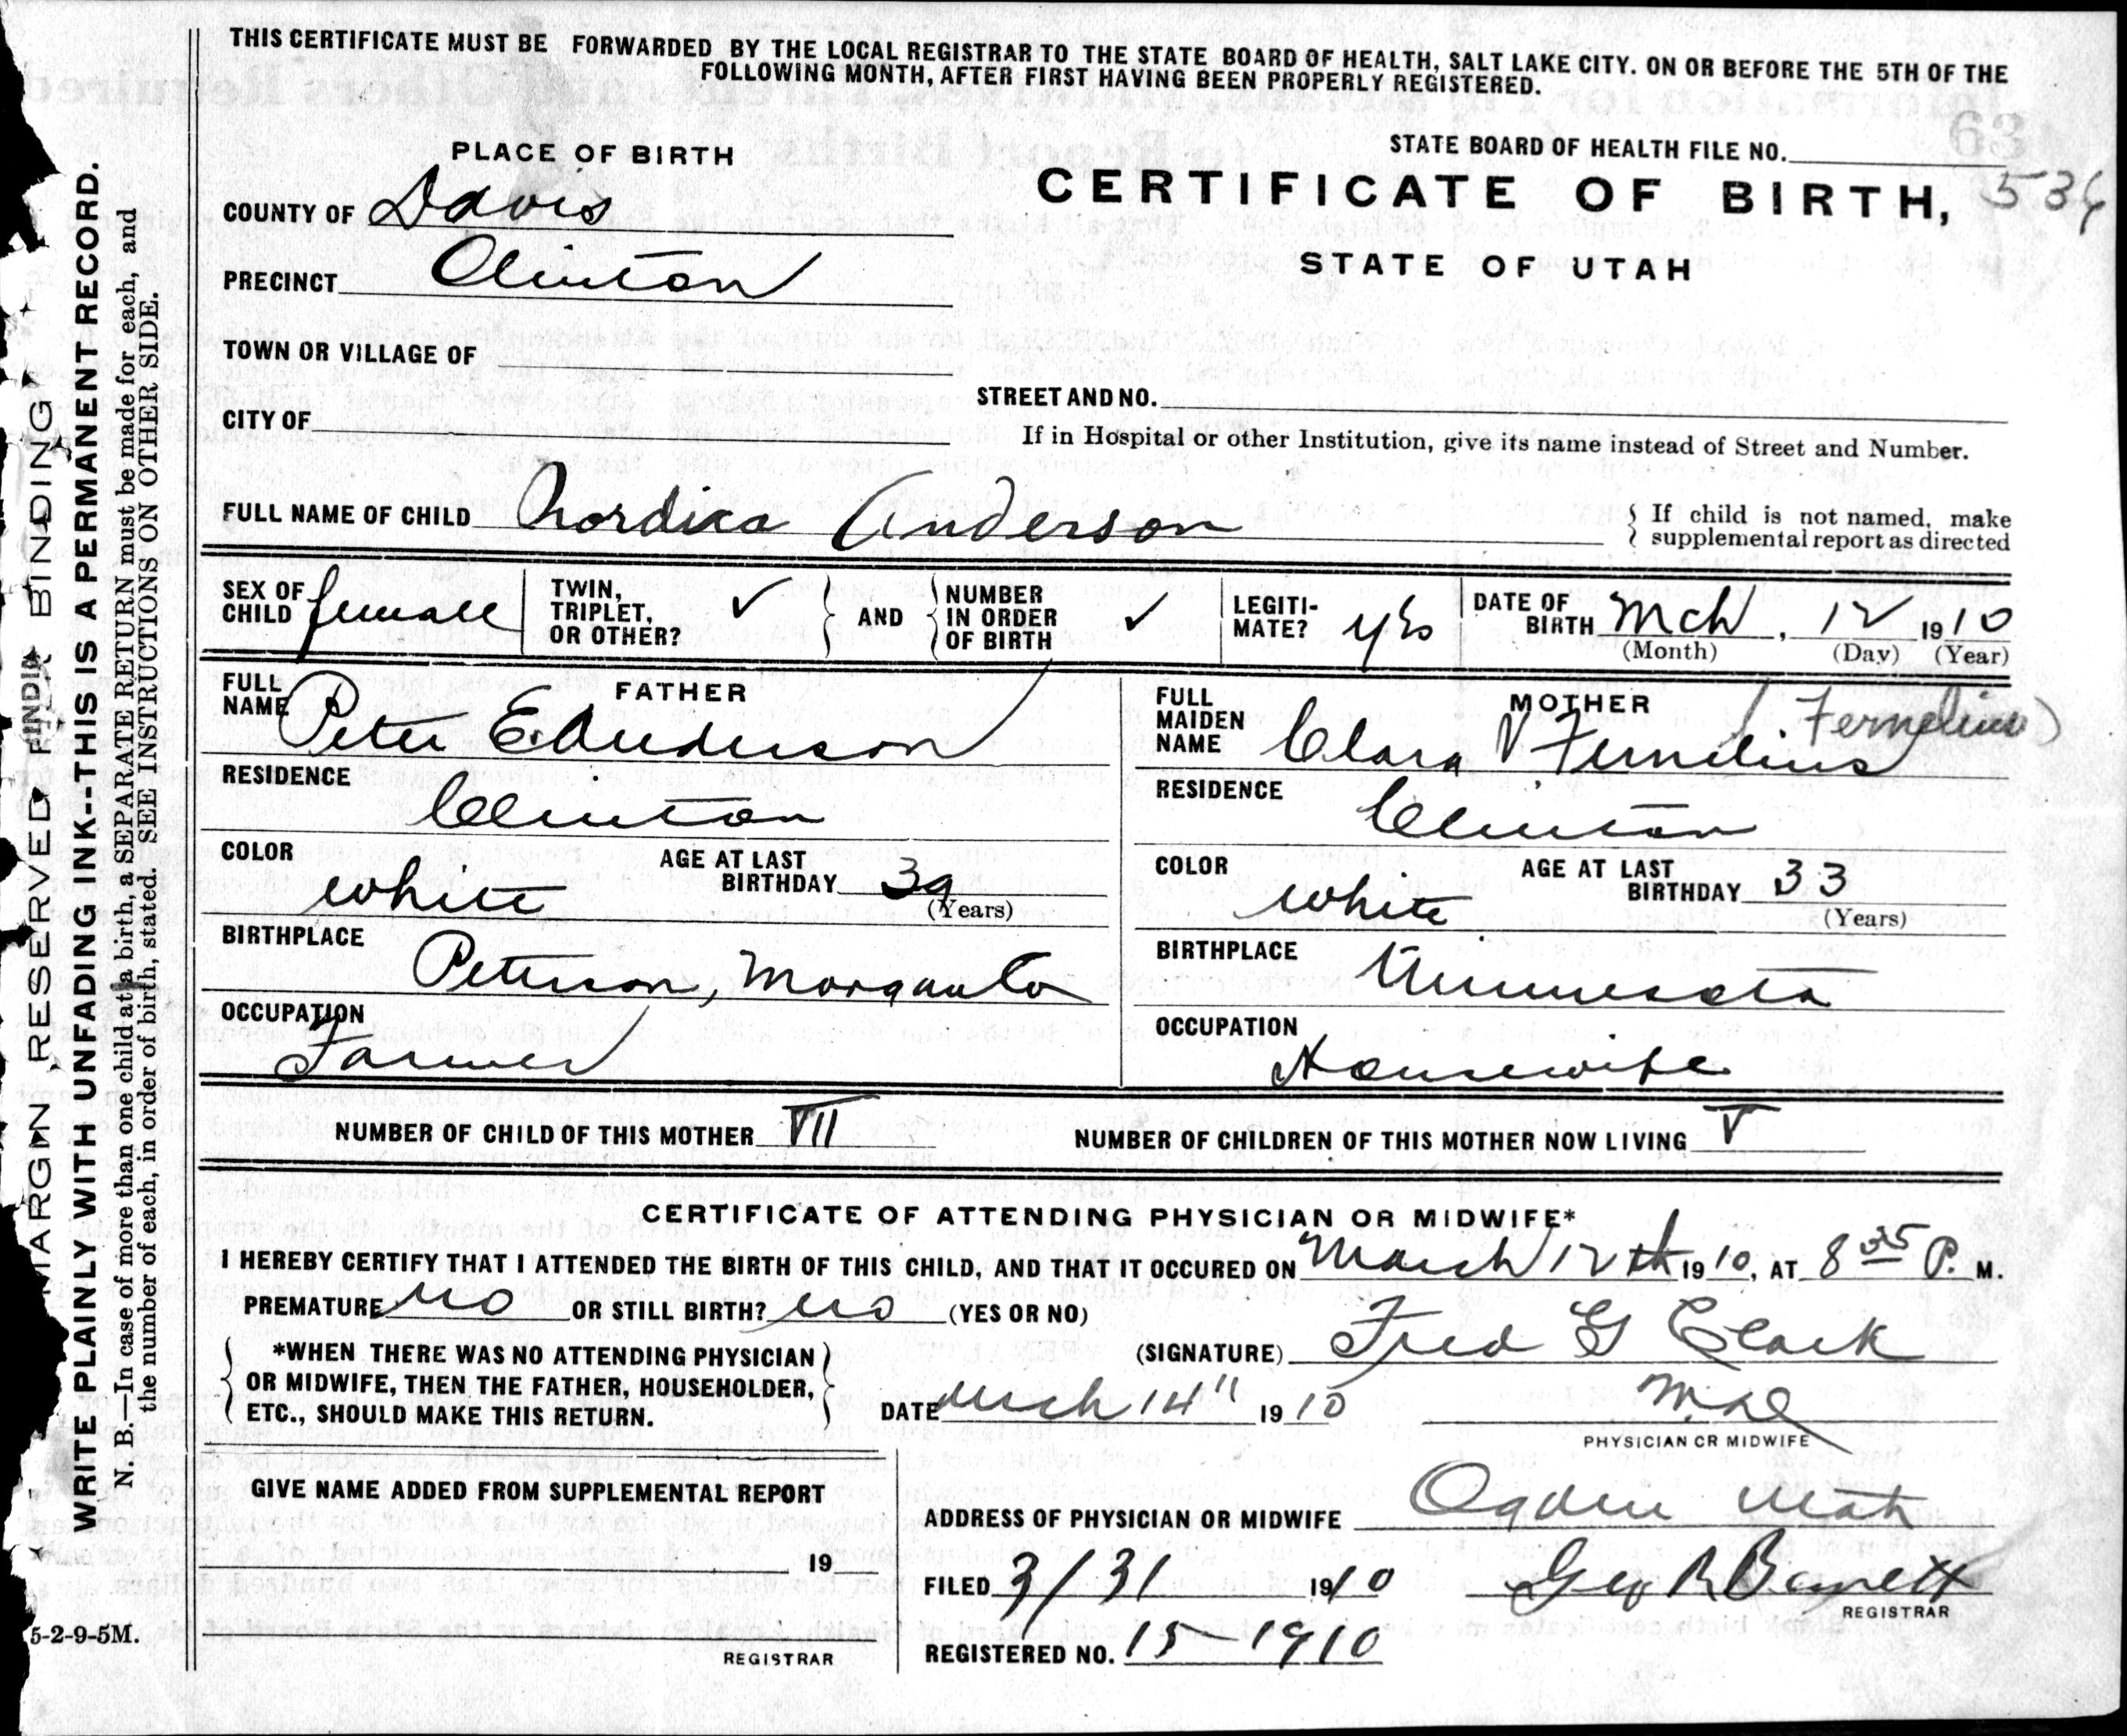 THIS CERTIFICATE MUST BE FORWARDED BY THE LOCAL REGISTRAR TO THE STATE BOARD OF HEALTH, SALT LAKE CITY. ON OR BEFORE THE 5TH OF THE
FOLLOWING MONTH, AFTER FIRST HAVING BEEN PROPERLY REGISTERED.
PLACE OF BIRTH
STATE BOARD OF HEALTH FILE NO.
63
CERTIFICATE OF BIRTH,
STATE OF UTAH
COUNTY OF Davis
PRECINCT Clinton
TOWN OR VILLAGE OF
STREET AND NO.
CITY OF
If in Hospital or other Institution, give its name instead of Street and Number.
FULL NAME OF CHILD Nordica Anderson
{ If child is not named, make
supplemental report as directed
SEX OF CHILD female
TWIN, TRIPLET, OR OTHER? ✓ } AND { NUMBER IN ORDER OF BIRTH ✓
LEGITI-MATE? yes
DATE OF BIRTH Mch, 12 1910
(Month) (Day) (Year)
FATHER
FULL NAME Peter E Anderson
RESIDENCE Clinton
COLOR white AGE AT LAST BIRTHDAY 39
(Years)
BIRTHPLACE Peterson, Morgan Co
OCCUPATION Farmer
MOTHER (Fernelius)
FULL MAIDEN NAME Clara V Fernelius
RESIDENCE Clinton
COLOR white AGE AT LAST BIRTHDAY 33
(Years)
BIRTHPLACE Minnesota
OCCUPATION Housewife
NUMBER OF CHILD OF THIS MOTHER VII NUMBER OF CHILDREN OF THIS MOTHER NOW LIVING V
CERTIFICATE OF ATTENDING PHYSICIAN OR MIDWIFE*
I HEREBY CERTIFY THAT I ATTENDED THE BIRTH OF THIS CHILD, AND THAT IT OCCURED ON March 12th 1910, AT 8 35 P. M.
PREMATURE no OR STILL BIRTH? no (YES OR NO)
*WHEN THERE WAS NO ATTENDING PHYSICIAN
OR MIDWIFE, THEN THE FATHER, HOUSEHOLDER,
ETC., SHOULD MAKE THIS RETURN.
(SIGNATURE) Fred G Clark
DATE Mch 14" 1910 M.D.
PHYSICIAN OR MIDWIFE
GIVE NAME ADDED FROM SUPPLEMENTAL REPORT
19
REGISTRAR
ADDRESS OF PHYSICIAN OR MIDWIFE Ogden Utah
FILED 3/31 1910 Geo R Barrett
REGISTRAR
REGISTERED NO. 15-1910
5-2-9-5M.
MARGIN RESERVED FOR BINDING
WRITE PLAINLY WITH UNFADING INK--THIS IS A PERMANENT RECORD.
N. B.—In case of more than one child at a birth, a SEPARATE RETURN must be made for each, and
the number of each, in order of birth, stated. SEE INSTRUCTIONS ON OTHER SIDE.